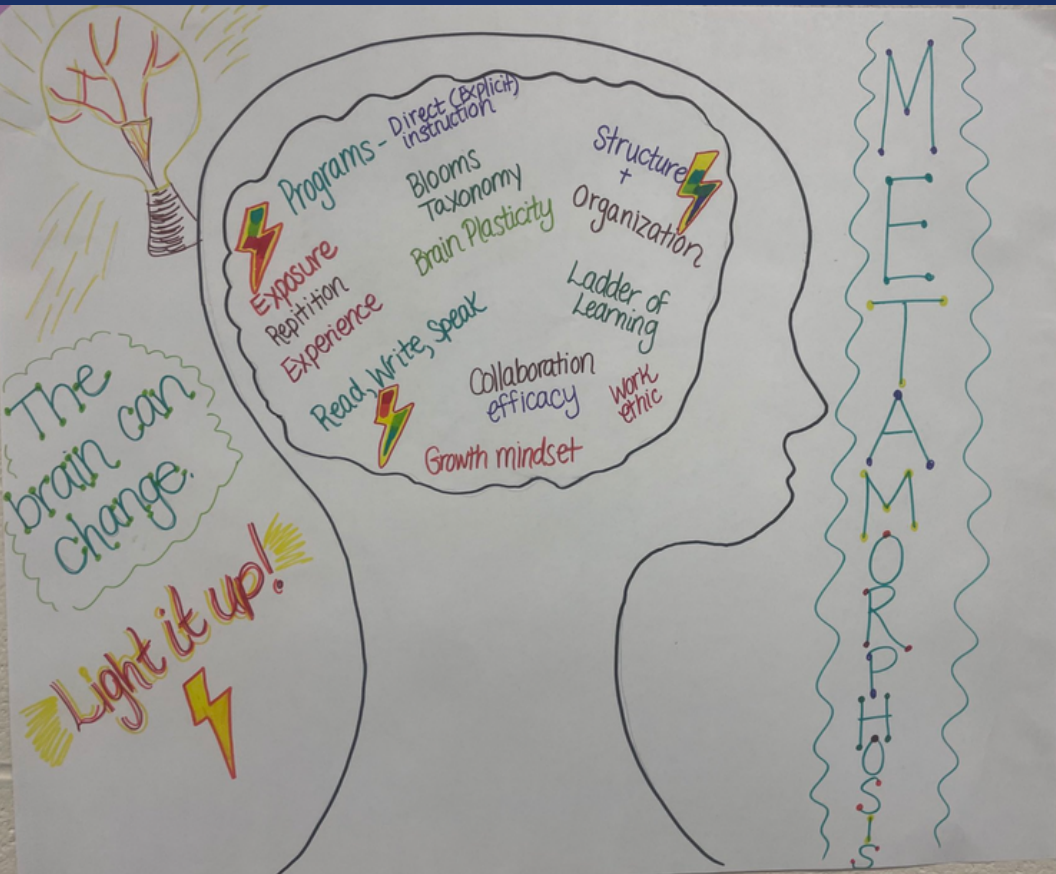 Programs - Direct (Explicit)
instruction
Blooms
Taxonomy
Brain Plasticity
Structure
+
Organization
Exposure
Repitition
Experience
Ladder of
Learning
Read, Write, Speak
Collaboration
efficacy
Work
ethic
Growth mindset
The
brain can
change.
Light it up!
METAMORPHOSIS